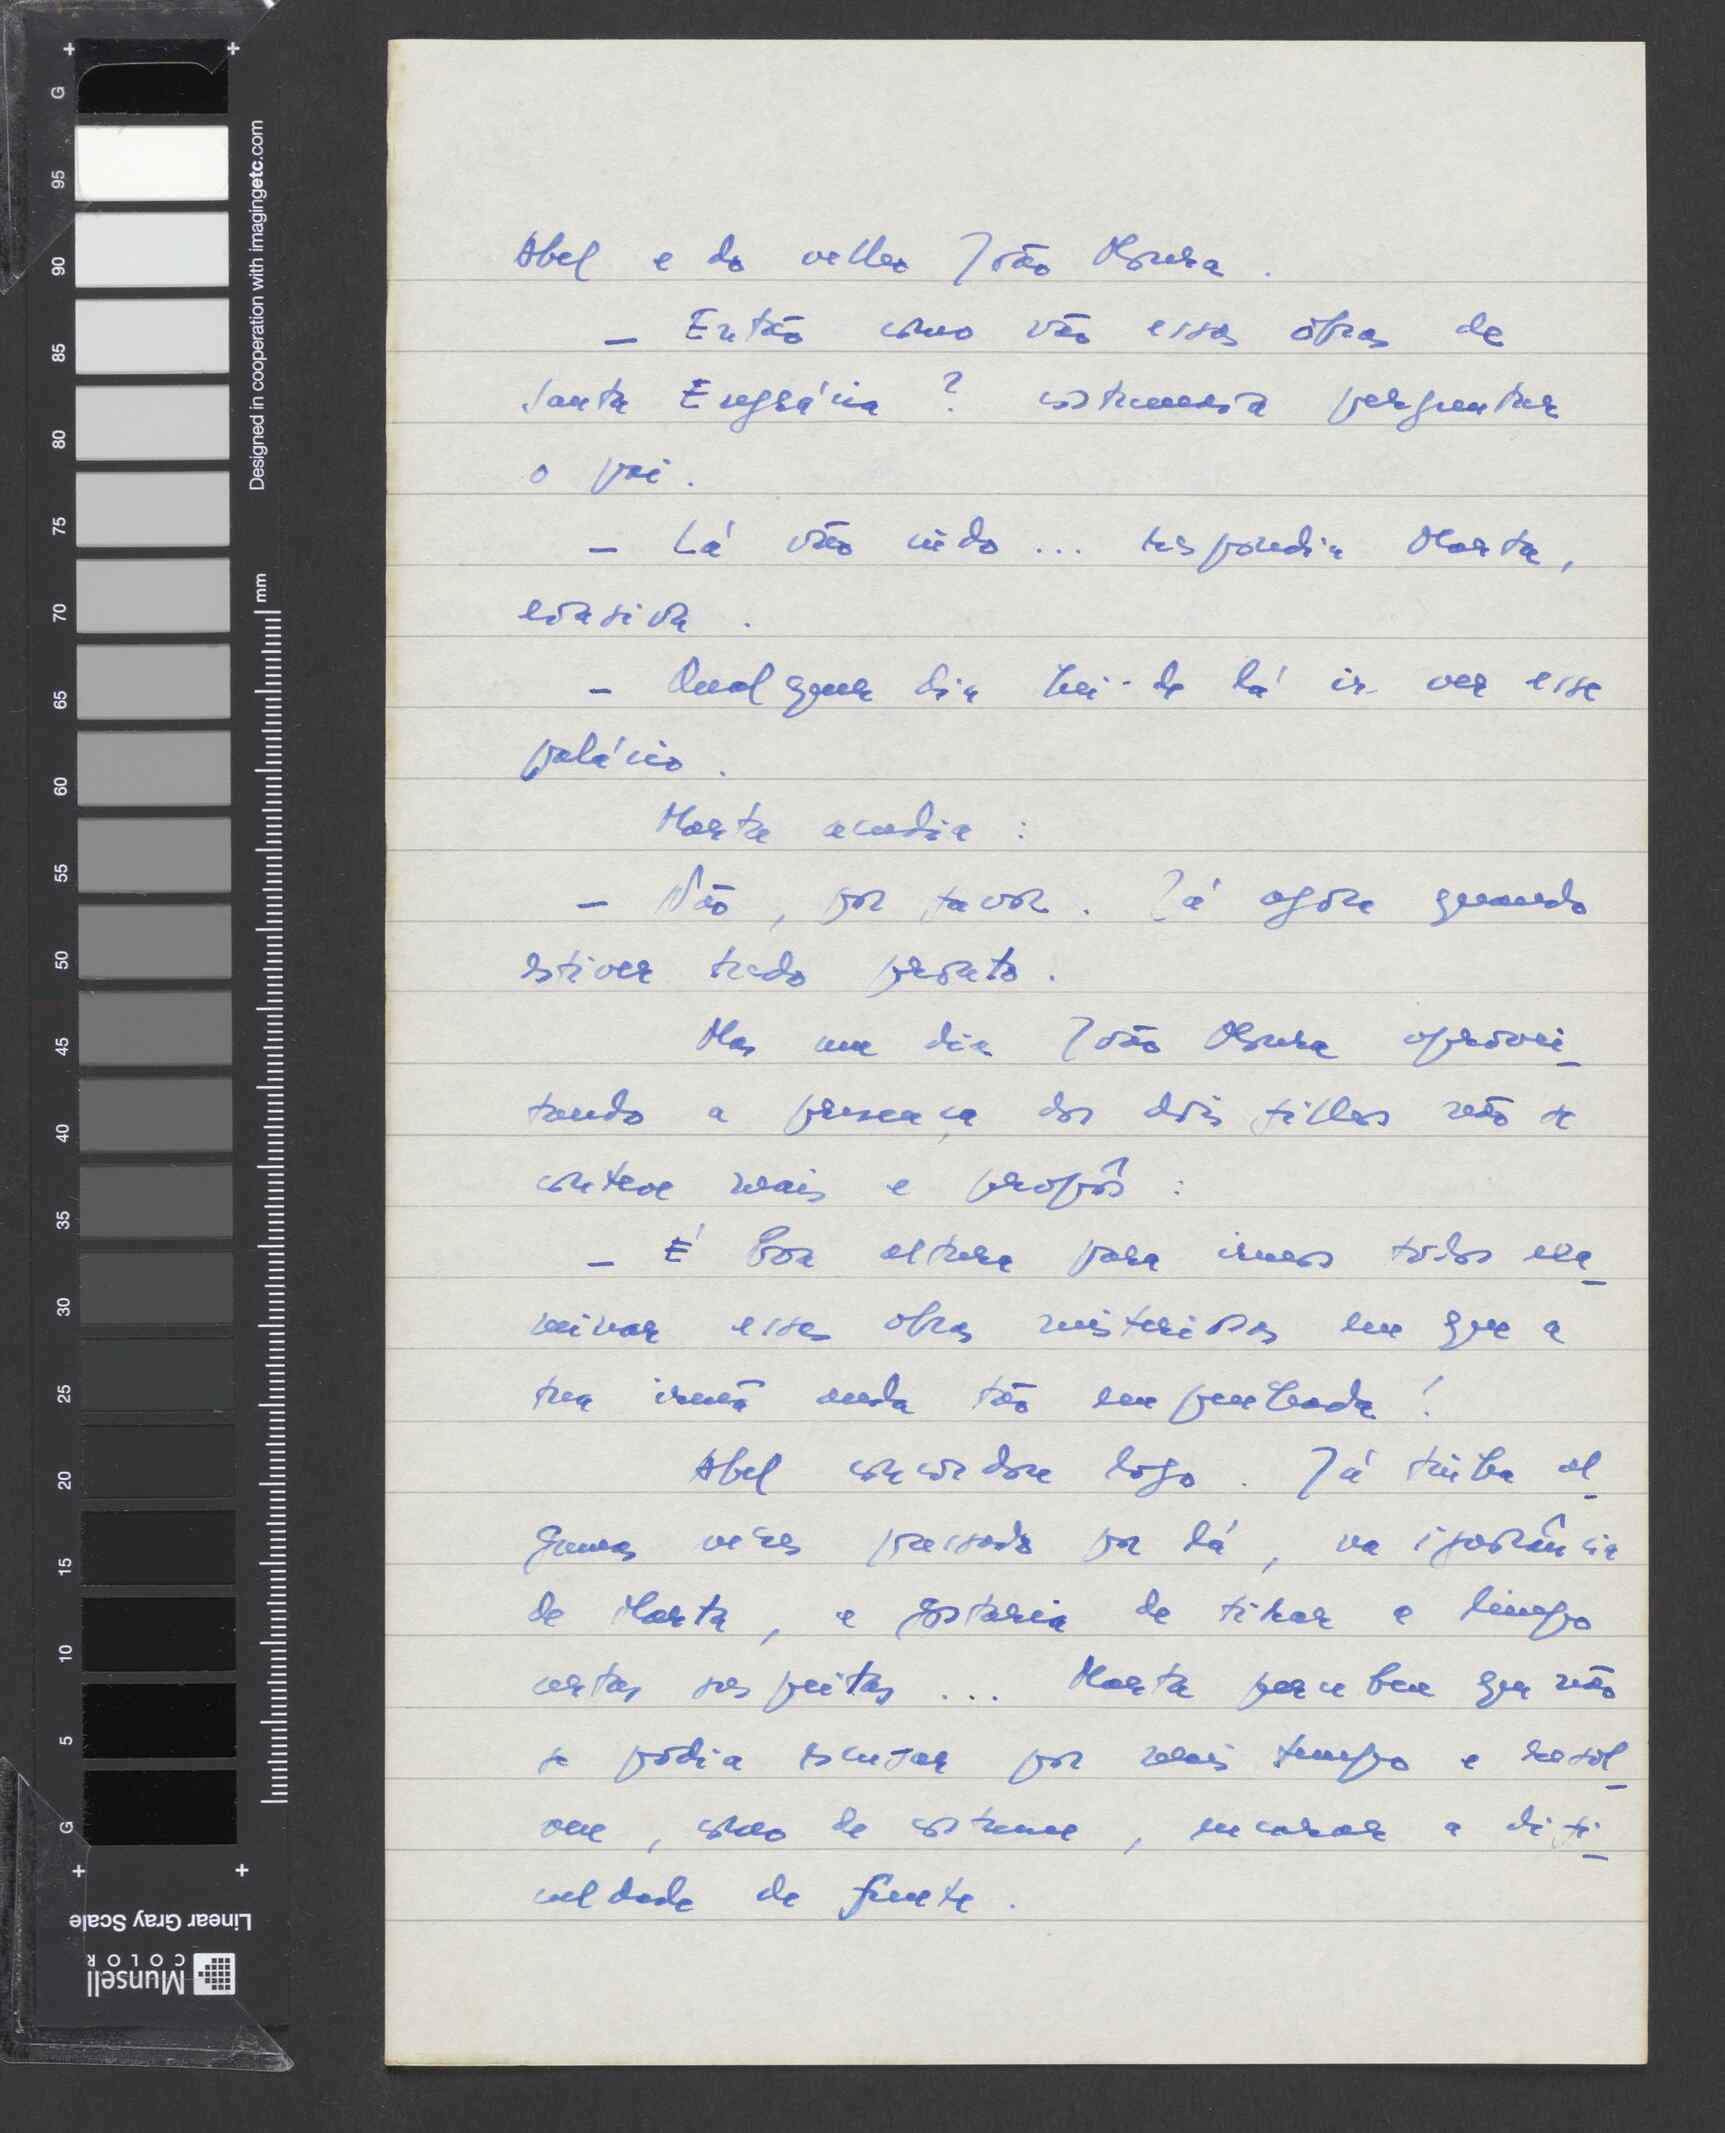 Abel e do velho João Moura.
– Então como vão essas obras de
Santa Engrácia? costumava perguntar
o pai.
– Lá vão indo... respondia Marta,
evasiva.
– Qualquer dia hei-de lá ir ver esse
palácio.
Marta acudia:
– Não, por favor. Já agora quando
estiver tudo pronto.
Mas um dia João Moura aprovei-
tando a presença dos dois filhos não se
conteve mais e propôs:
– É boa altura para irmos todos exa-
minar essas obras misteriosas em que a
tua irmã anda tão empenhada!
Abel concordou logo. Já tinha al-
gumas vezes passado por lá, na ignorância
de Marta, e gostaria de tirar a limpo
certas suspeitas... Marta percebeu que não
se podia escusar por mais tempo e resol-
veu, como de costume, encarar a difi-
culdade de frente.
G
95
90
85
80
75
70
65
60
55
50
45
40
35
30
25
20
15
10
5
G
mm
Designed in cooperation with imagingetc.com
Linear Gray Scale
Munsell
COLOR